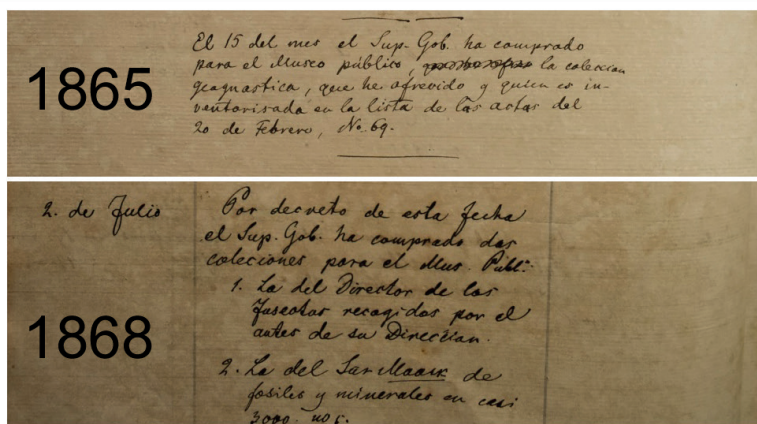 1865
El 15 del mes el Sup. Gob. ha comprado
para el Museo público, la coleccion
geagnastica, que he afrecido y quien es in-
ventorisada en la lista de las actas del
20 de Febrero, No. 69.
1868
2. de Julio
Por decreto de esta fecha
el Sup. Gob. ha comprado dos
coleciones para el Mus. Publ:
1. La del Director de los
recogidos por el
antes de su Direccian.
2. La del de
fosiles y minerales en casi
3000